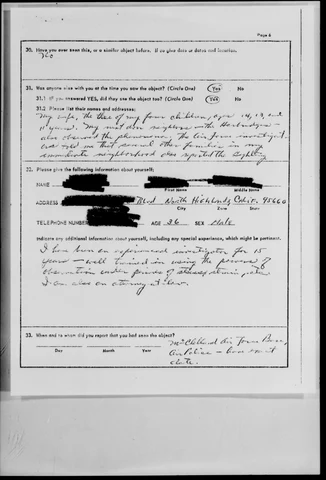 Page 6
30. Have you ever seen this, or a similar object before. If so give date or dates and location.
No
31. Was anyone else with you at the time you saw the object? (Circle One) Yes No
31.1 If you answered YES, did they see the object too? (Circle One) Yes No
31.2 Please list their names and addresses:
My wife, the three of my four children, ages 14, 13, and
11 years. My next door neighbors
also observed the phenomena. The Air Force investigat-
ors told me that several other families in my
immediate neighborhood also reported the sighting
32. Please give the following information about yourself:
NAME
First Name Middle Name
ADDRESS Blvd. North Highlands Calif. 95660
City Zone State
TELEPHONE NUMBER AGE 36 SEX Male
Indicate any additional information about yourself, including any special experience, which might be pertinent.
I have been an experienced investigator for 15
years - well trained in using the powers of
observation under periods of stress
I am also an attorney at law.
33. When and to whom did you report that you had seen the object?
Day Month Year
McClelland Air Force Base,
Air Police -
date.